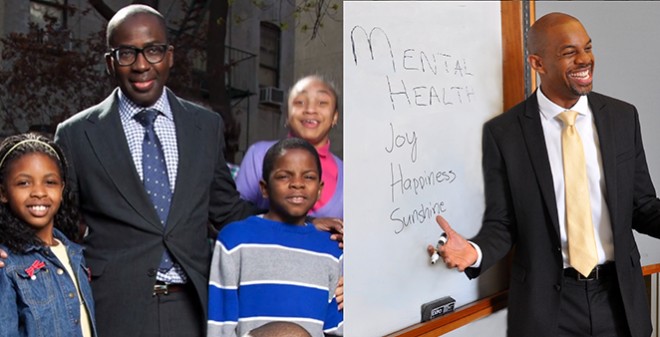 MENTAL
HEALTH
Joy
Happiness
Sunshine
EXPO